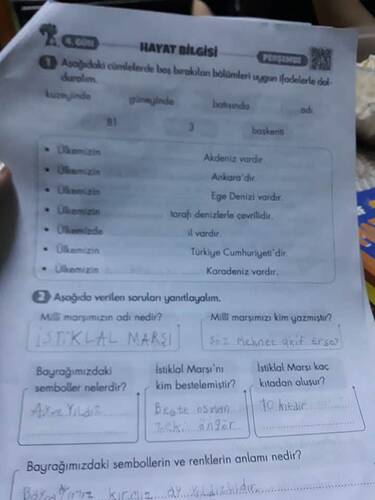 4. GÜN
HAYAT BİLGİSİ
PERŞEMBE
1 Aşağıdaki cümlelerde boş bırakılan bölümleri uygun ifadelerle dol-
duralım.
kuzeyinde güneyinde batısında adı
81 3 başkenti
• Ülkemizin Akdeniz vardır.
• Ülkemizin Ankara'dır.
• Ülkemizin Ege Denizi vardır.
• Ülkemizin tarafı denizlerle çevrilidir.
• Ülkemizde il vardır.
• Ülkemizin Türkiye Cumhuriyeti'dir.
• Ülkemizin Karadeniz vardır.
2 Aşağıda verilen soruları yanıtlayalım.
Millî marşımızın adı nedir?
İSTİKLAL MARŞI
Millî marşımızı kim yazmıştır?
Söz Mehmet akif ersoy
Bayrağımızdaki
semboller nelerdir?
Ay ve Yıldız
İstiklal Marşı'nı
kim bestelemiştir?
osman
zeki üngör
İstiklal Marşı kaç
kıtadan oluşur?
10 kıtdır
Bayrağımızdaki sembollerin ve renklerin anlamı nedir?
kırmızı ay